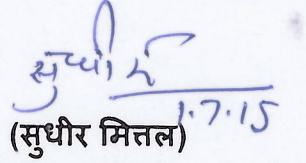 सुधीर
1.7.15
(सुधीर मित्तल)